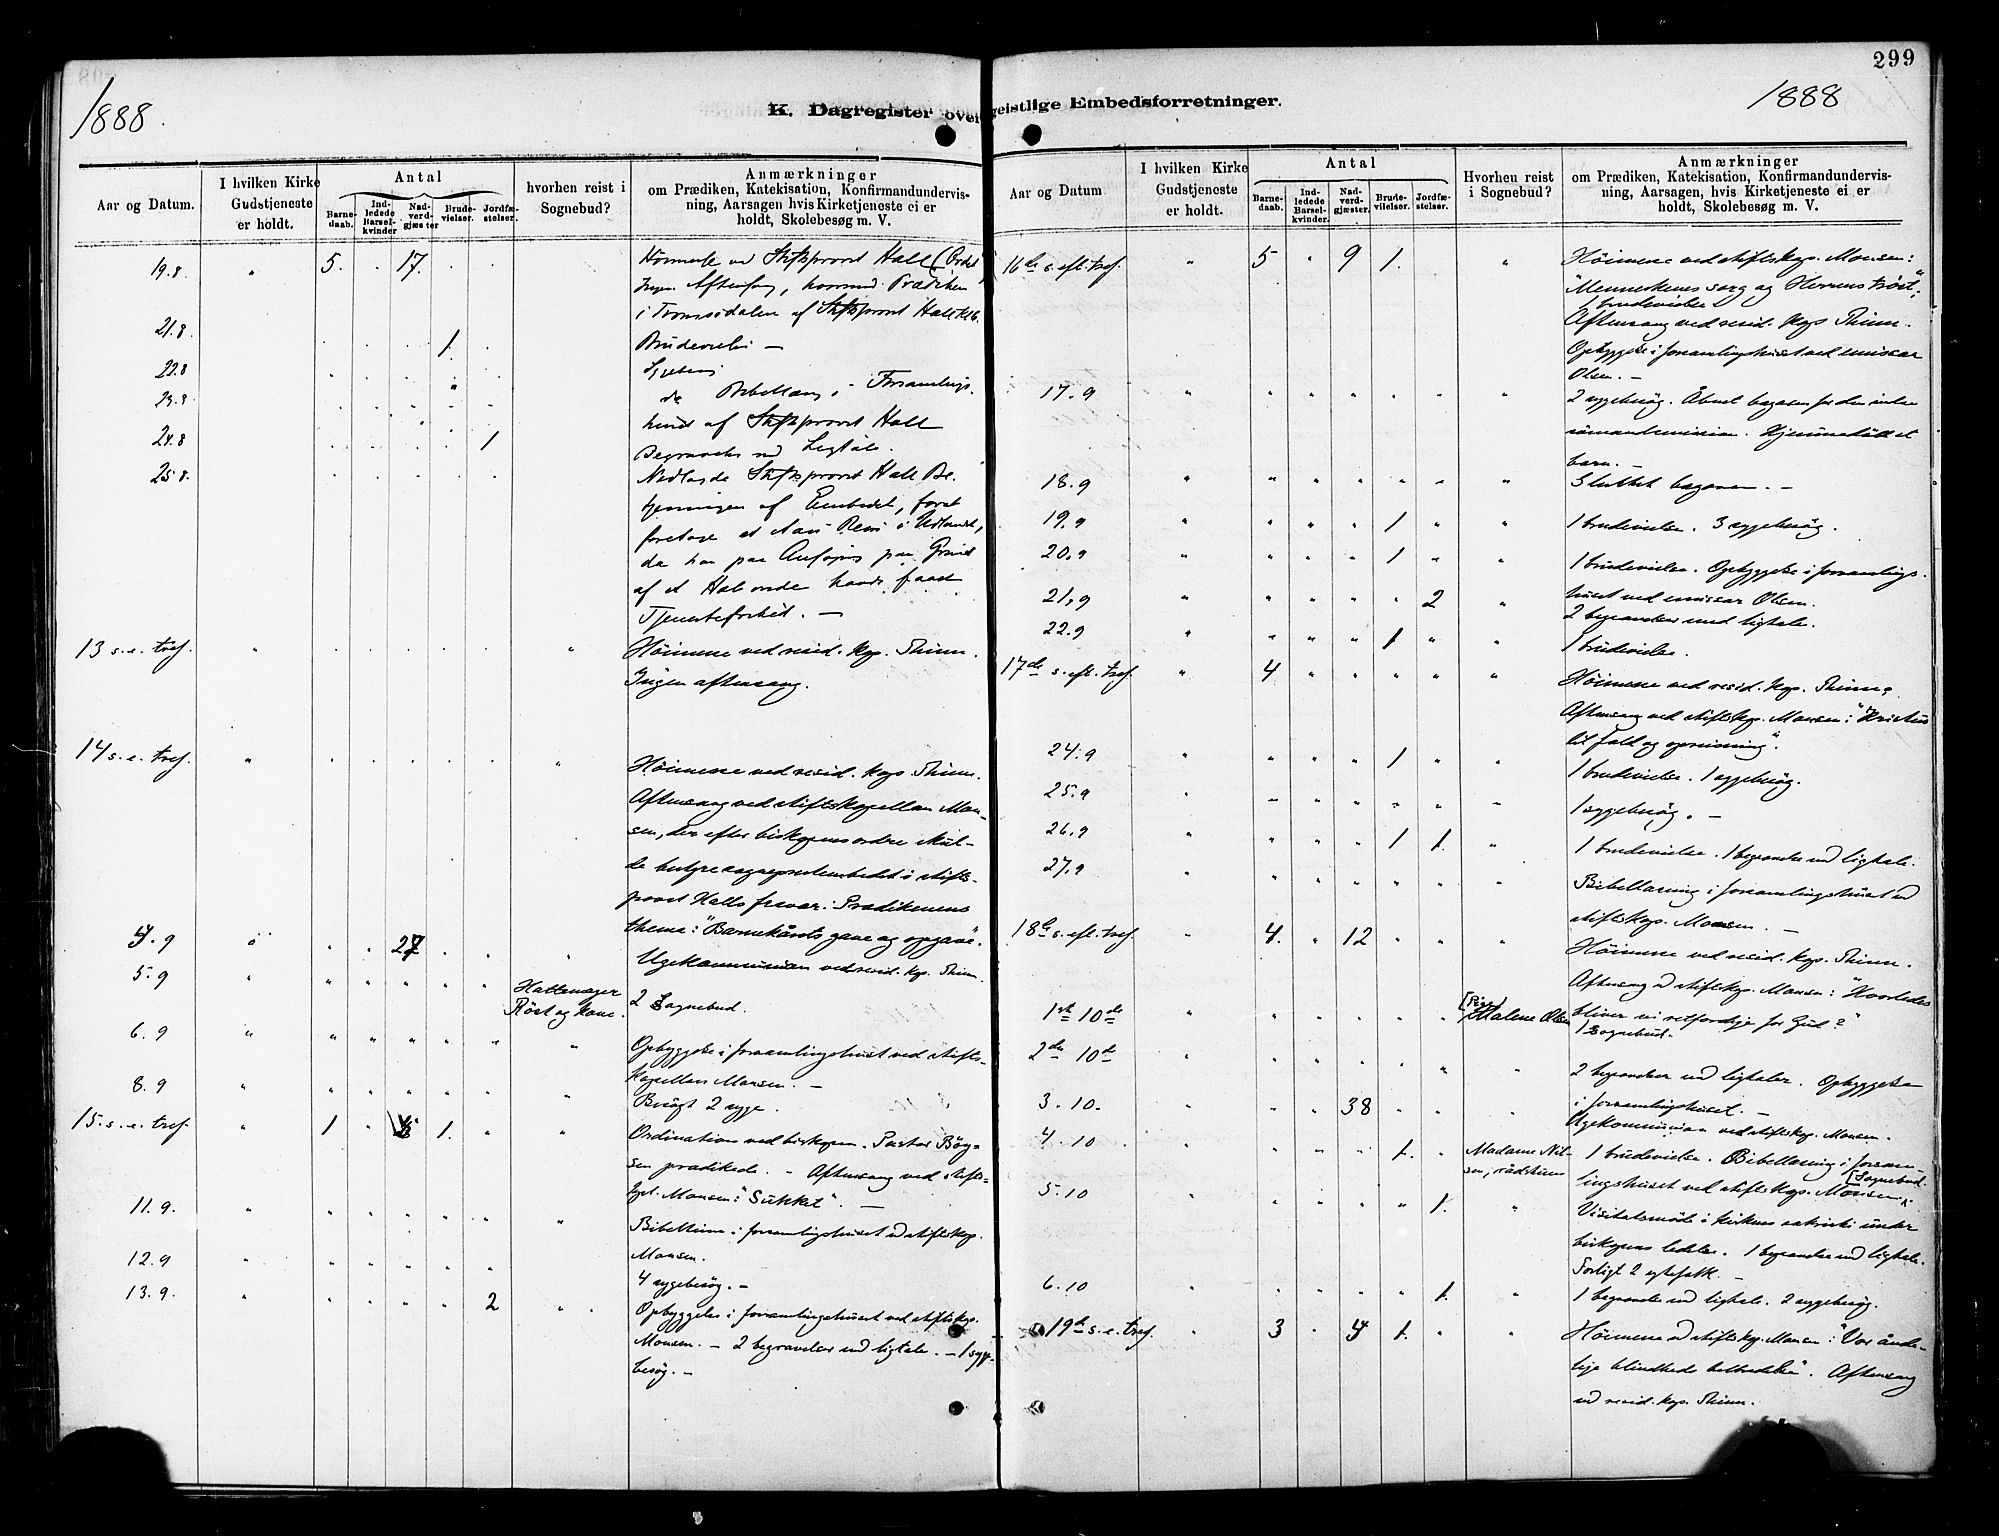 299
1888.
1888
K. Dagregister over geistlige Embedsforretninger.
Aar og Datum.
I hvilken Kirke Gudstjeneste er holdt.
Antal
Barnedaab.
Indledede Barselkvinder
Nadverdgjæster
Brudevielser.
Jordfæstelser.
hvorhen reist i Sognebud?
Anmærkninger
om Prædiken, Katekisation, Konfirmandundervisning, Aarsagen hvis Kirketjeneste ei er holdt, Skolebesøg m. V.
19.8 " 5. . 17. . . Høimesse ved Stiftsprovst Hall
Ingen Aftensang, hvorimod Prædiken
i Tromsødalen af Stiftsprovst Hall Kl 6.
21.8 . . . 1. . Brudevielse —
22.8 . . . . .
23.8 . . . " . do Bibellæsn. i Forsamlings-
huset af Stiftsprovst Hall
24.8 . . . . 1 Begravelse ved Ligtale.
25.8 . . . . . Nedlagde Stiftsprovst Hall Be-
tjeningen af Embedet, for at
foretage et Aars Reise i Udlandet,
da han paa Ansøgning paa Grund
af et Halsonde havde faaet
Tjenestefrihed. —
13 s. e. tref. " . . . . . " Høimesse ved resid. kap. Thinn.
Ingen aftensang.
14 s. e. tref. " . . . . . " Høimesse ved resid. kap. Thinn.
Aftensang ved stiftskapellan Mon-
sen, der efter biskopens ordre skul-
de bestyre sogneprestembedet i stifts-
provst Halls fravær: Prædikenens
thema: "Barnekårets gave og opgave".
4.9 " . . 27 . . " Ugekommunion ved resid. kap. Thinn.
5.9 " " " " " " Hattemager
Röst og kone. 2 Sognebud.
6.9 " " " " " " " Opbyggelse i forsamlingshuset ved stifts-
kapellan Monsen. —
8.9 " " " " " " " Besøgt 2 syge.
15. s. e. tref. " 1 " 1. " " Ordination ved biskopen. Pastor Böy-
sen prædikede. — Aftensang ved stifts-
kpl. Monsen: "Sukket". —
11.9. " " " " " " " Bibeltime i forsamlingshuset v. stiftskap.
Monsen.
12.9 " " " " " " 4 sygebesøg. —
13.9. " " " " " 2 " Opbyggelse i forsamlingshuset ved stiftskap.
Monsen. — 2 begravelser med ligtale. — 1 syge-
besøg. —
Aar og Datum
I hvilken Kirke Gudstjeneste er holdt.
Antal
Barnedaab.
Indledede Barselkvinder.
Nadverdgjæster.
Brudevielser.
Jordfæstelser.
Hvorhen reist i Sognebud?
Anmærkninger
om Prædiken, Katekisation, Konfirmandundervisning, Aarsagen, hvis Kirketjeneste ei er holdt, Skolebesøg m. V.
16de s. eft. tref. " 5 . 9 1. " Höimesse ved stiftskap. Monsen:
"Menneskenes sorg og Herrens tröst";
1 brudevielse
Aftensang ved resid. kap. Thinn.
Opbyggelse i forsamlingshuset ved emissær
Olsen. —
17.9 " " " " " " " 2 sygebesøg. Åbnet bazaren for den indre
sömandsmission. Hjemmedöbt et
barn. —
18.9 " " " " " " " Sluttet bazaren. —
19.9 " " " " 1 " " 1 brudevielse. 3 sygebesög.
20.9 " " " " 1 " " 1 brudevielse. Opbyggelse i forsamlings-
huset ved emissær Olsen.
21.9 " " " " " 2 " 2 begravelser med ligtale.
22.9 " " " " 1. " " 1 brudevielse.
17de s. eft. tref. " 4 " " " " " Höimesse ved resid. kap. Thinn.
Aftensang ved stiftskap. Monsen: "Kristus
til fald og opreisning".
24.9 " " " " 1 " " 1 brudevielse. 1 sygebesög.
25.9 " " " " " " " 1 sygebesög. —
26.9 " " " " 1 1. " 1 brudevielse. 1 begravelse med ligtale.
27.9 " " " " " " " Bibellæsning i forsamlingshuset v.
stiftskap. Monsen. —
18de s. eft. tref. " 4. " 12 " " " Höimesse ved resid. kap. Thinn.
Aftensang v. stiftskap. Monsen: "Hvorledes
bliver vi retfærdige for Gud?"
1ste 10de " " " " " " [Pige) Malene Olsen 1 Sognebud.
2den 10de " " " " " " " 2 begravelser med ligtaler. Opbyggelse
i forsamlingshuset. —
3.10. " " " 38 " " " Ugekommunion ved stiftskap. Monsen.
4.10 " " " " 1. " Madame Nil-
sen, rådstuen 1 brudevielse. Bibellæsning i forsam-
lingshuset ved stiftskap. Monsen. [Sognebud
5.10 " " " " " 1. " Visitatsmöde i kirkens sakristi under
biskopens ledelse. 1 begravelse med ligtale.
Forligt 2 egtefolk. —
6.10 " " " " " 1. " 1 begravelse med ligtale. 2 sygebesög.
19de s. e. tref. " 3 " 4 1. " " Höimesse v. stiftskap. Monsen: "Vor ånde-
lige blindhede helbredelse". Aftensang
ved resid. kap. Thinn.